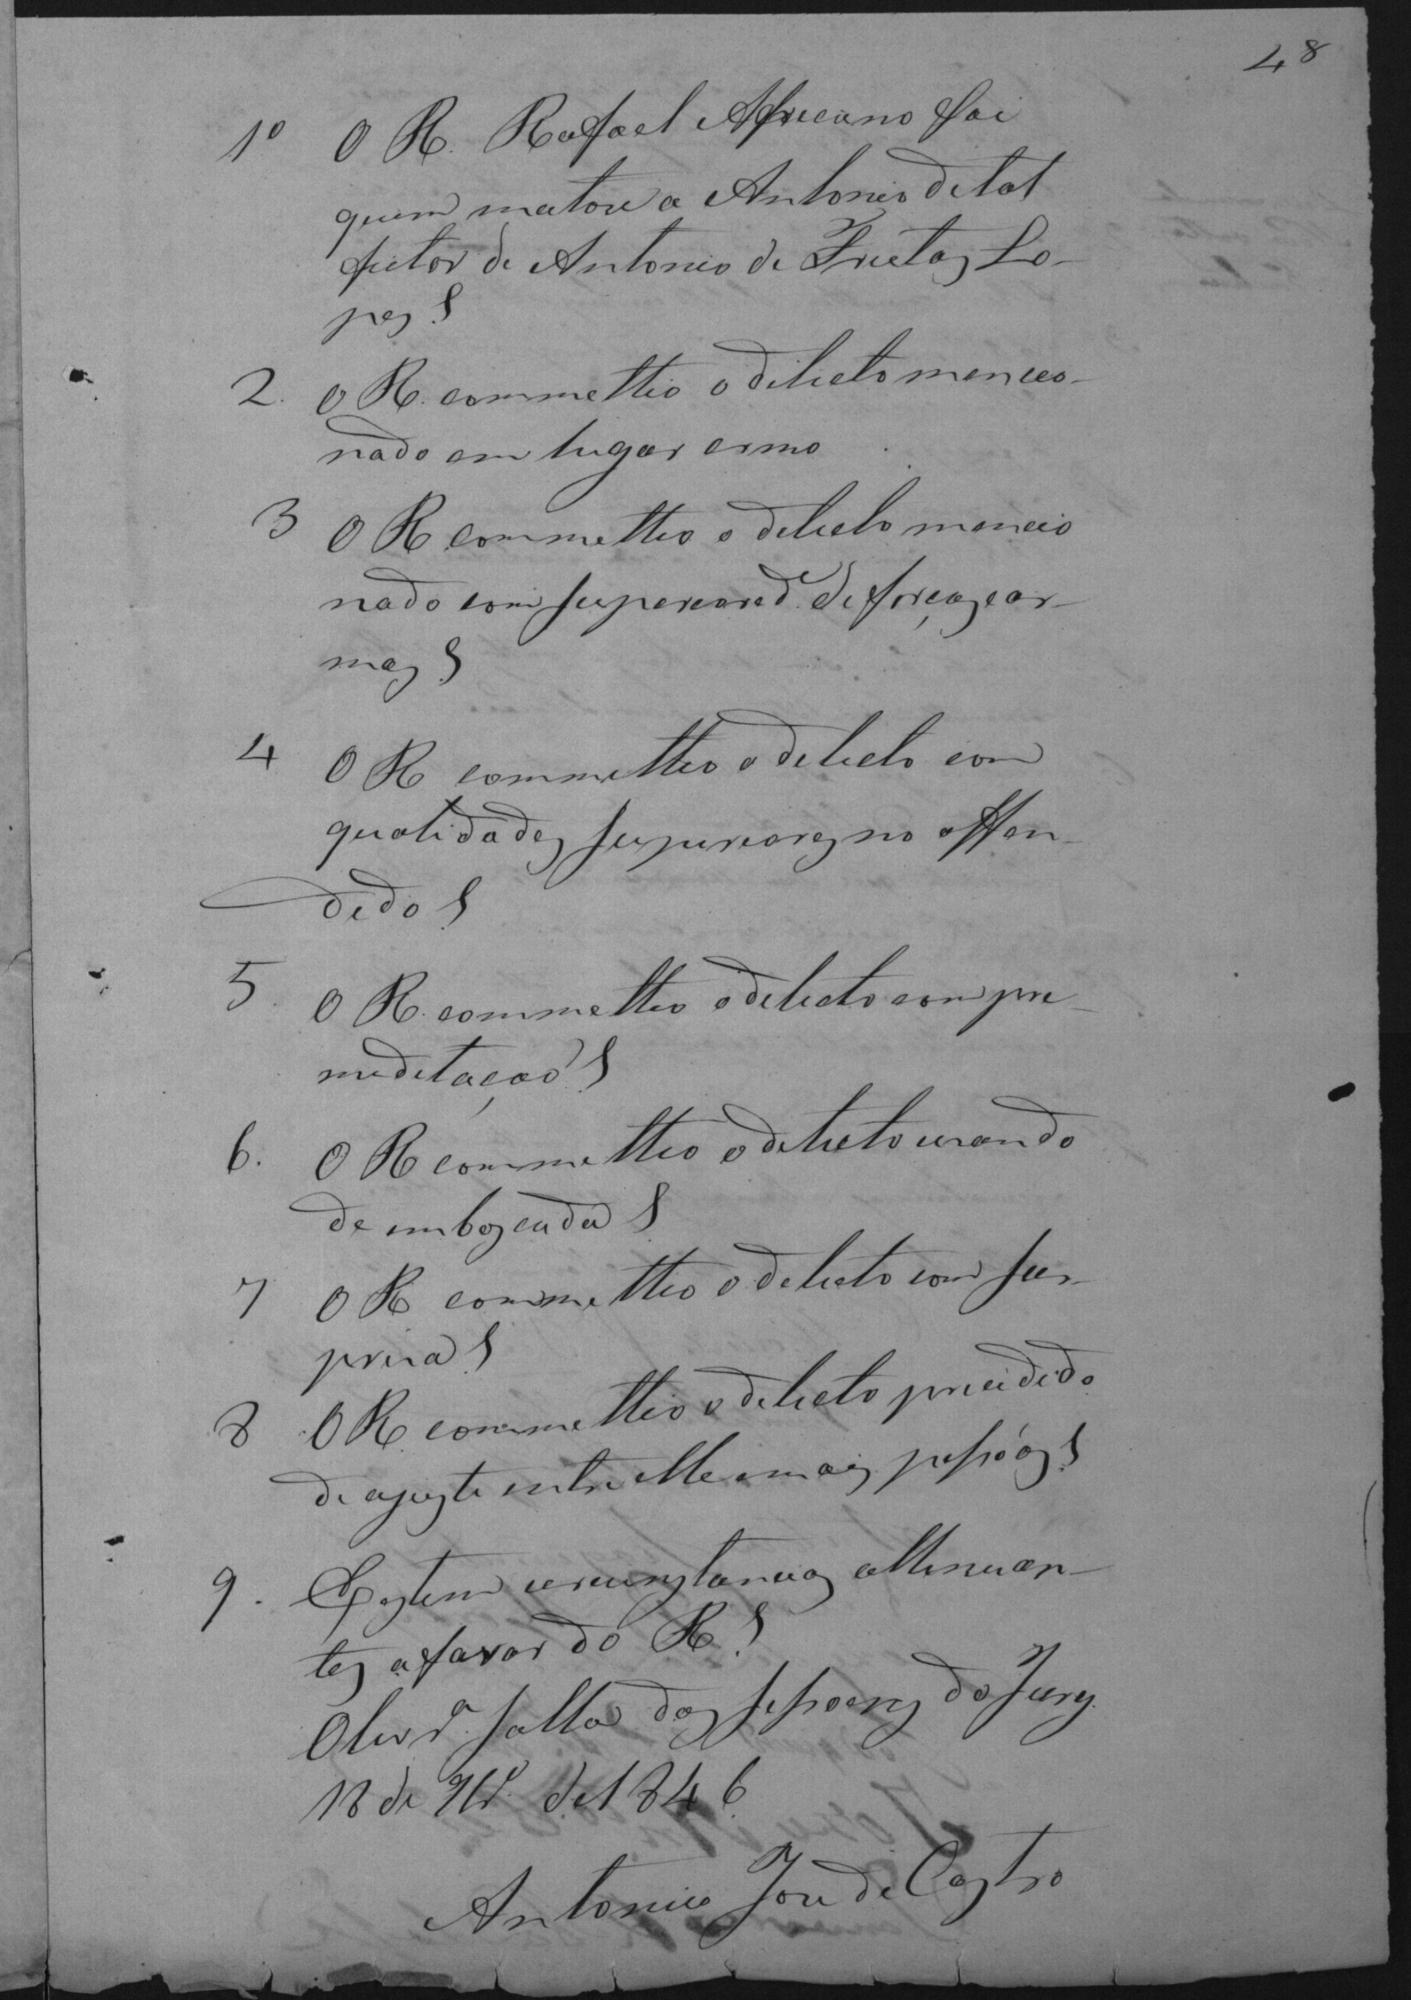 48
1º O R. Rafael Africano foi
quem matou a Antonio de tal
feitor de Antonio de Freitas Lo-
pes?
2. O R. commetteo o delicto mencio-
nado em lugar ermo
3 O R commetteo o delicto mencio
nado com superiorid.e de forças e ar-
mas?
4 O R commetteo o delicto com
qualidades superiores no offen-
dido?
5. O R. commetteo o delicto com pre-
meditação?
6. O R commetteo o delicto usando
de emboscada?
7 O R commetteo o delicto com sur-
presa?
8 O R commetteo o delicto precedido
de ajuste entre elle e mais pessoas?
9. Existem circunstancias attenuan-
tes a favor do R?
Salla das sessoens do Jury
18 de de 1846
Antonio José de Castro